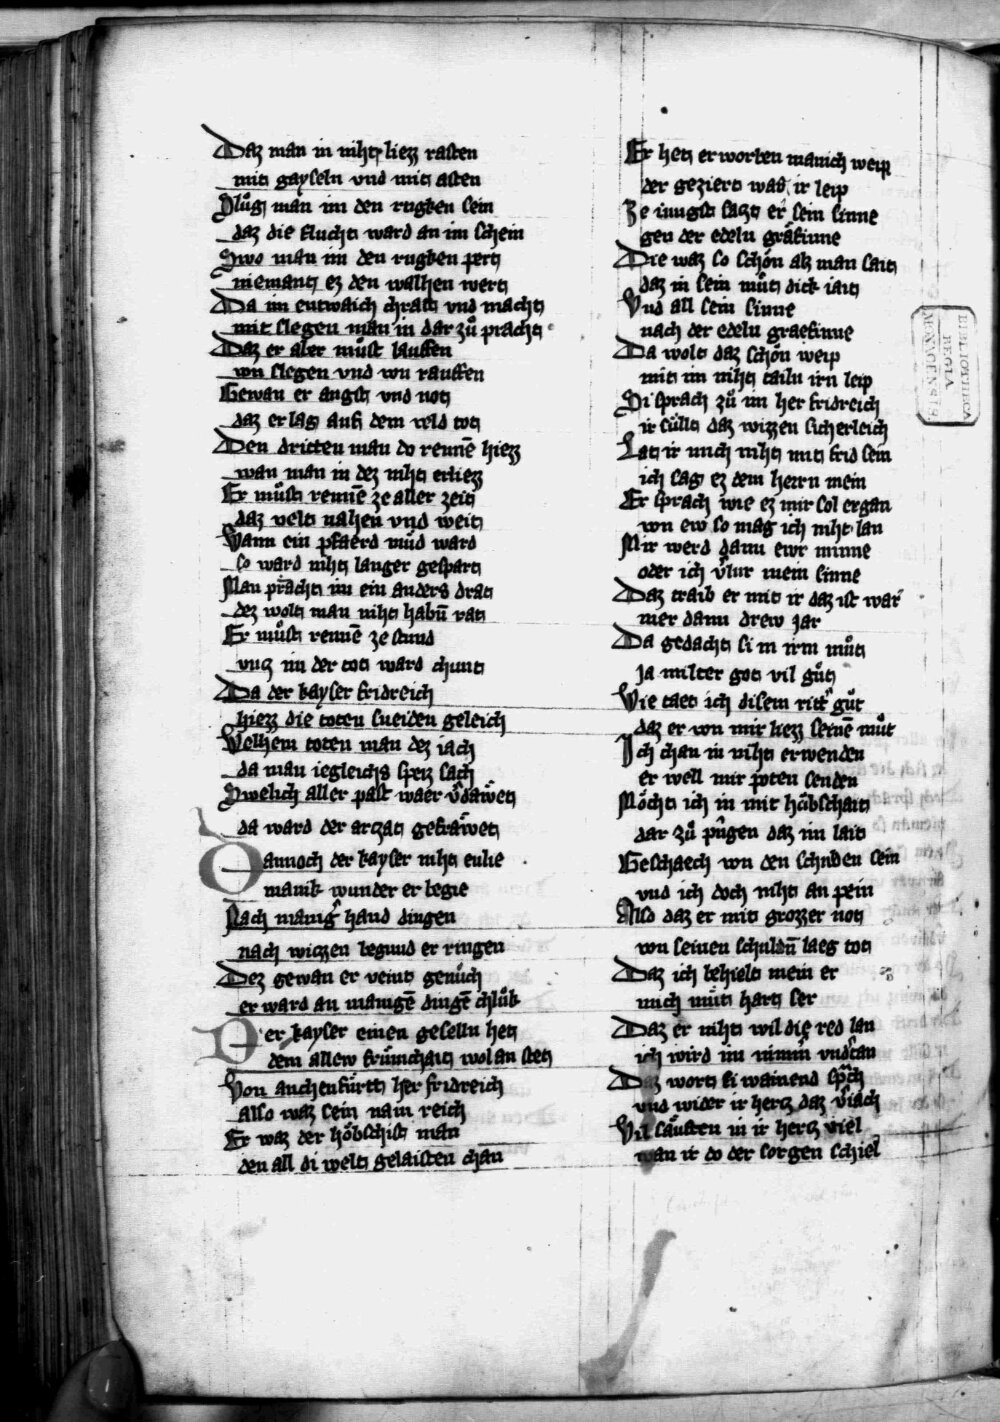 Daz man in niht liezz rasten
mit gayseln vnd mit asten
Sluͦg man im den rugken sein
daz die flucht ward an im schein
Swo man im den rugken pert
niemant ez den walhen wert
Da im entwaich chraft vnd macht
mit slegen man in dar zuͦ pracht
Daz er aber muͦst lauffen
von slegen vnd von rauffen
Gewan er angst vnd not
daz er lag auf dem veld tot
Den dritten man do rennē hiezz
wan man in dez niht erliezz
Er muͦst rennē ze aller zeit
daz velt nahen vnd weit
Wann ein pfaerd muͤd ward
so ward niht langer gespart
Man praͤcht im ein anders drat
dez wolt man niht habn̄ rat
Er muͦst rennē ze stund
vntz im der tot ward chunt
Da der kayser fridreich
hiezz die toten sneiden geleich
Welhem toten man dez iach
da man iegleichs speiz sach
Swelich aller past waer v̓daẘet
da ward der arczat gefraẘet
Dannoch der kayser niht enlie
manik wunder er begie
Nach manig̓ hand dingen
nach wiczen begund er ringen
Dez gewan er veint genuͦch
er ward an manigē dingē chluͦk
Der kayser einen geselln het
dem allew fruͤmchait wol an stet
Von anchenfuͤrtt her fridreich
also waz sein nam reich
Er waz der hoͤbschist man
den all di welt gelaisten chan
Er het erworben manich weip
der geziert waz ir leip
Ze iungst sazt er sein sinne
gen der edeln graͤfinne
Die waz so schoͤn alz man sait
daz in sein muͦt dick iait
Vnd all sein sinne
nach der edeln graefinne
Da wolt daz schoͤn weip
mit im niht tailn irn leip
Si sprach zuͦ im her fridreich
ir suͤllt daz wizzen sicherleich
Lat ir mich niht mit frid sein
ich sag ez dem herrn mein
Er sprach wie ez mir sol ergan
von ew so mag ich niht lan
Mir werd dann ewr minne
oder ich v̓lur mein sinne
Daz traib er mit ir daz ist war
mer dann drew jar
Da gedacht si in irm muͦt
ja milter got vil guͦt
Wie taet ich disem ritt̓ guͦt
daz er von mir liezz seinē muͦt
Ich chan in niht erwenden
er well mir poten senden
Moͤcht ich in mit hoͤbschait
dar zuͦ pringen daz im lait
Geschaech von den schulden sein
vnd ich doch niht an pein
Also daz er mit grozzer not
von seinen schuldn̄ laeg tot
Daz ich behielt mein er
mich muͤt hart ser
Daz er niht wil die red lan
ich wird im nimm̓ vnd̓tan
Daz wort si wainend sprach
vnd wider ir hercz daz v̓iach
Vil saͤufften in ir hercz viel
wan ir do der sorgen schiel
BIBLIOTHECA
REGIA
MONACENSIS